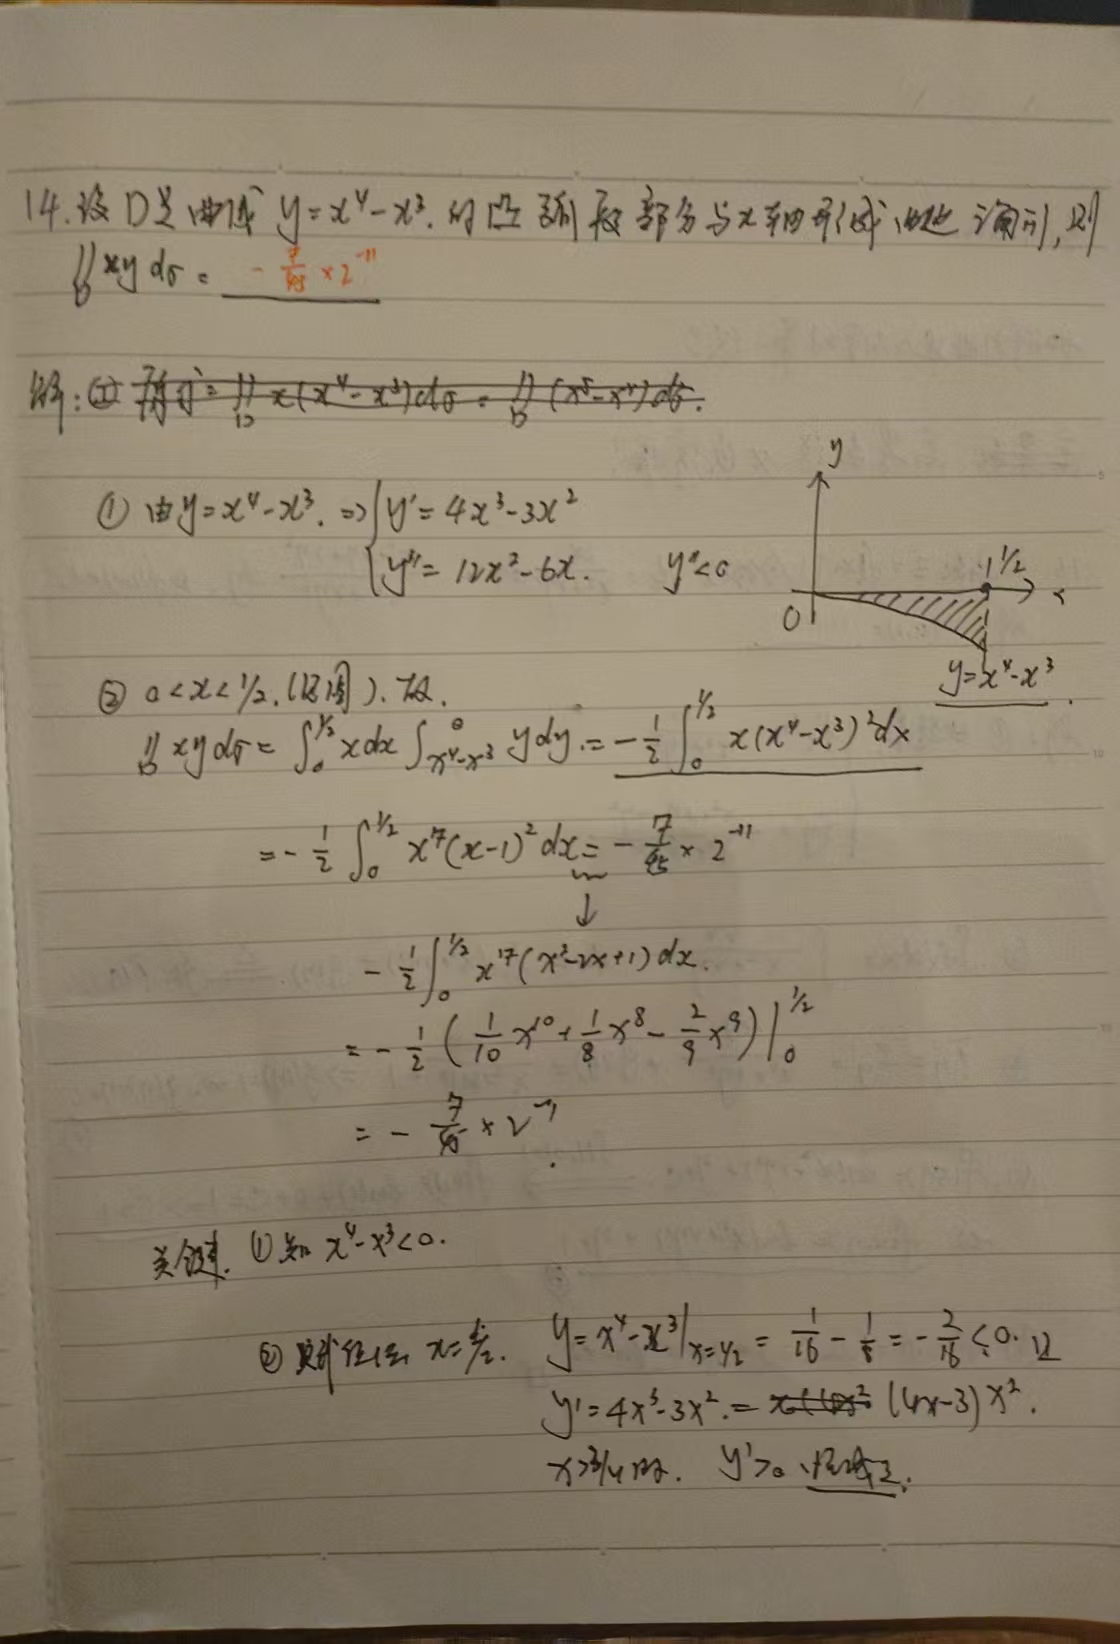 14.设D是曲线 y=x⁴-x³.的凸弧段部分与x轴形成曲边 形,则
∬_D xy dσ = -7/45 × 2⁻¹¹
解:② 原式=∬_D x(x⁴-x³)dσ = ∬_D (x⁵-x⁴)dσ.
y
① 由y=x⁴-x³. => { y'=4x³-3x²
y''=12x²-6x. y''<0
1/2
0
x
y=x⁴-x³
② 0<x<1/2.( ).故.
∬_D xy dσ = ∫₀^{1/2} x dx ∫_{x⁴-x³}^0 y dy. = -1/2 ∫₀^{1/2} x(x⁴-x³)² dx
= -1/2 ∫₀^{1/2} x⁷(x-1)² dx = -7/45 × 2⁻¹¹
↓
-1/2 ∫₀^{1/2} x⁷(x²-2x+1)dx.
= -1/2 ( 1/10 x¹⁰ + 1/8 x⁸ - 2/9 x⁹ ) |₀^{1/2}
= - 7/45 × 2⁻¹¹.
关键. ①知 x⁴-x³<0.
② x=1/2. y=x⁴-x³|_{x=1/2} = 1/16 - 1/8 = -2/16 <0. 且
y'=4x³-3x². = x(4x² (4x-3)x².
x>3/4时. y'>0.